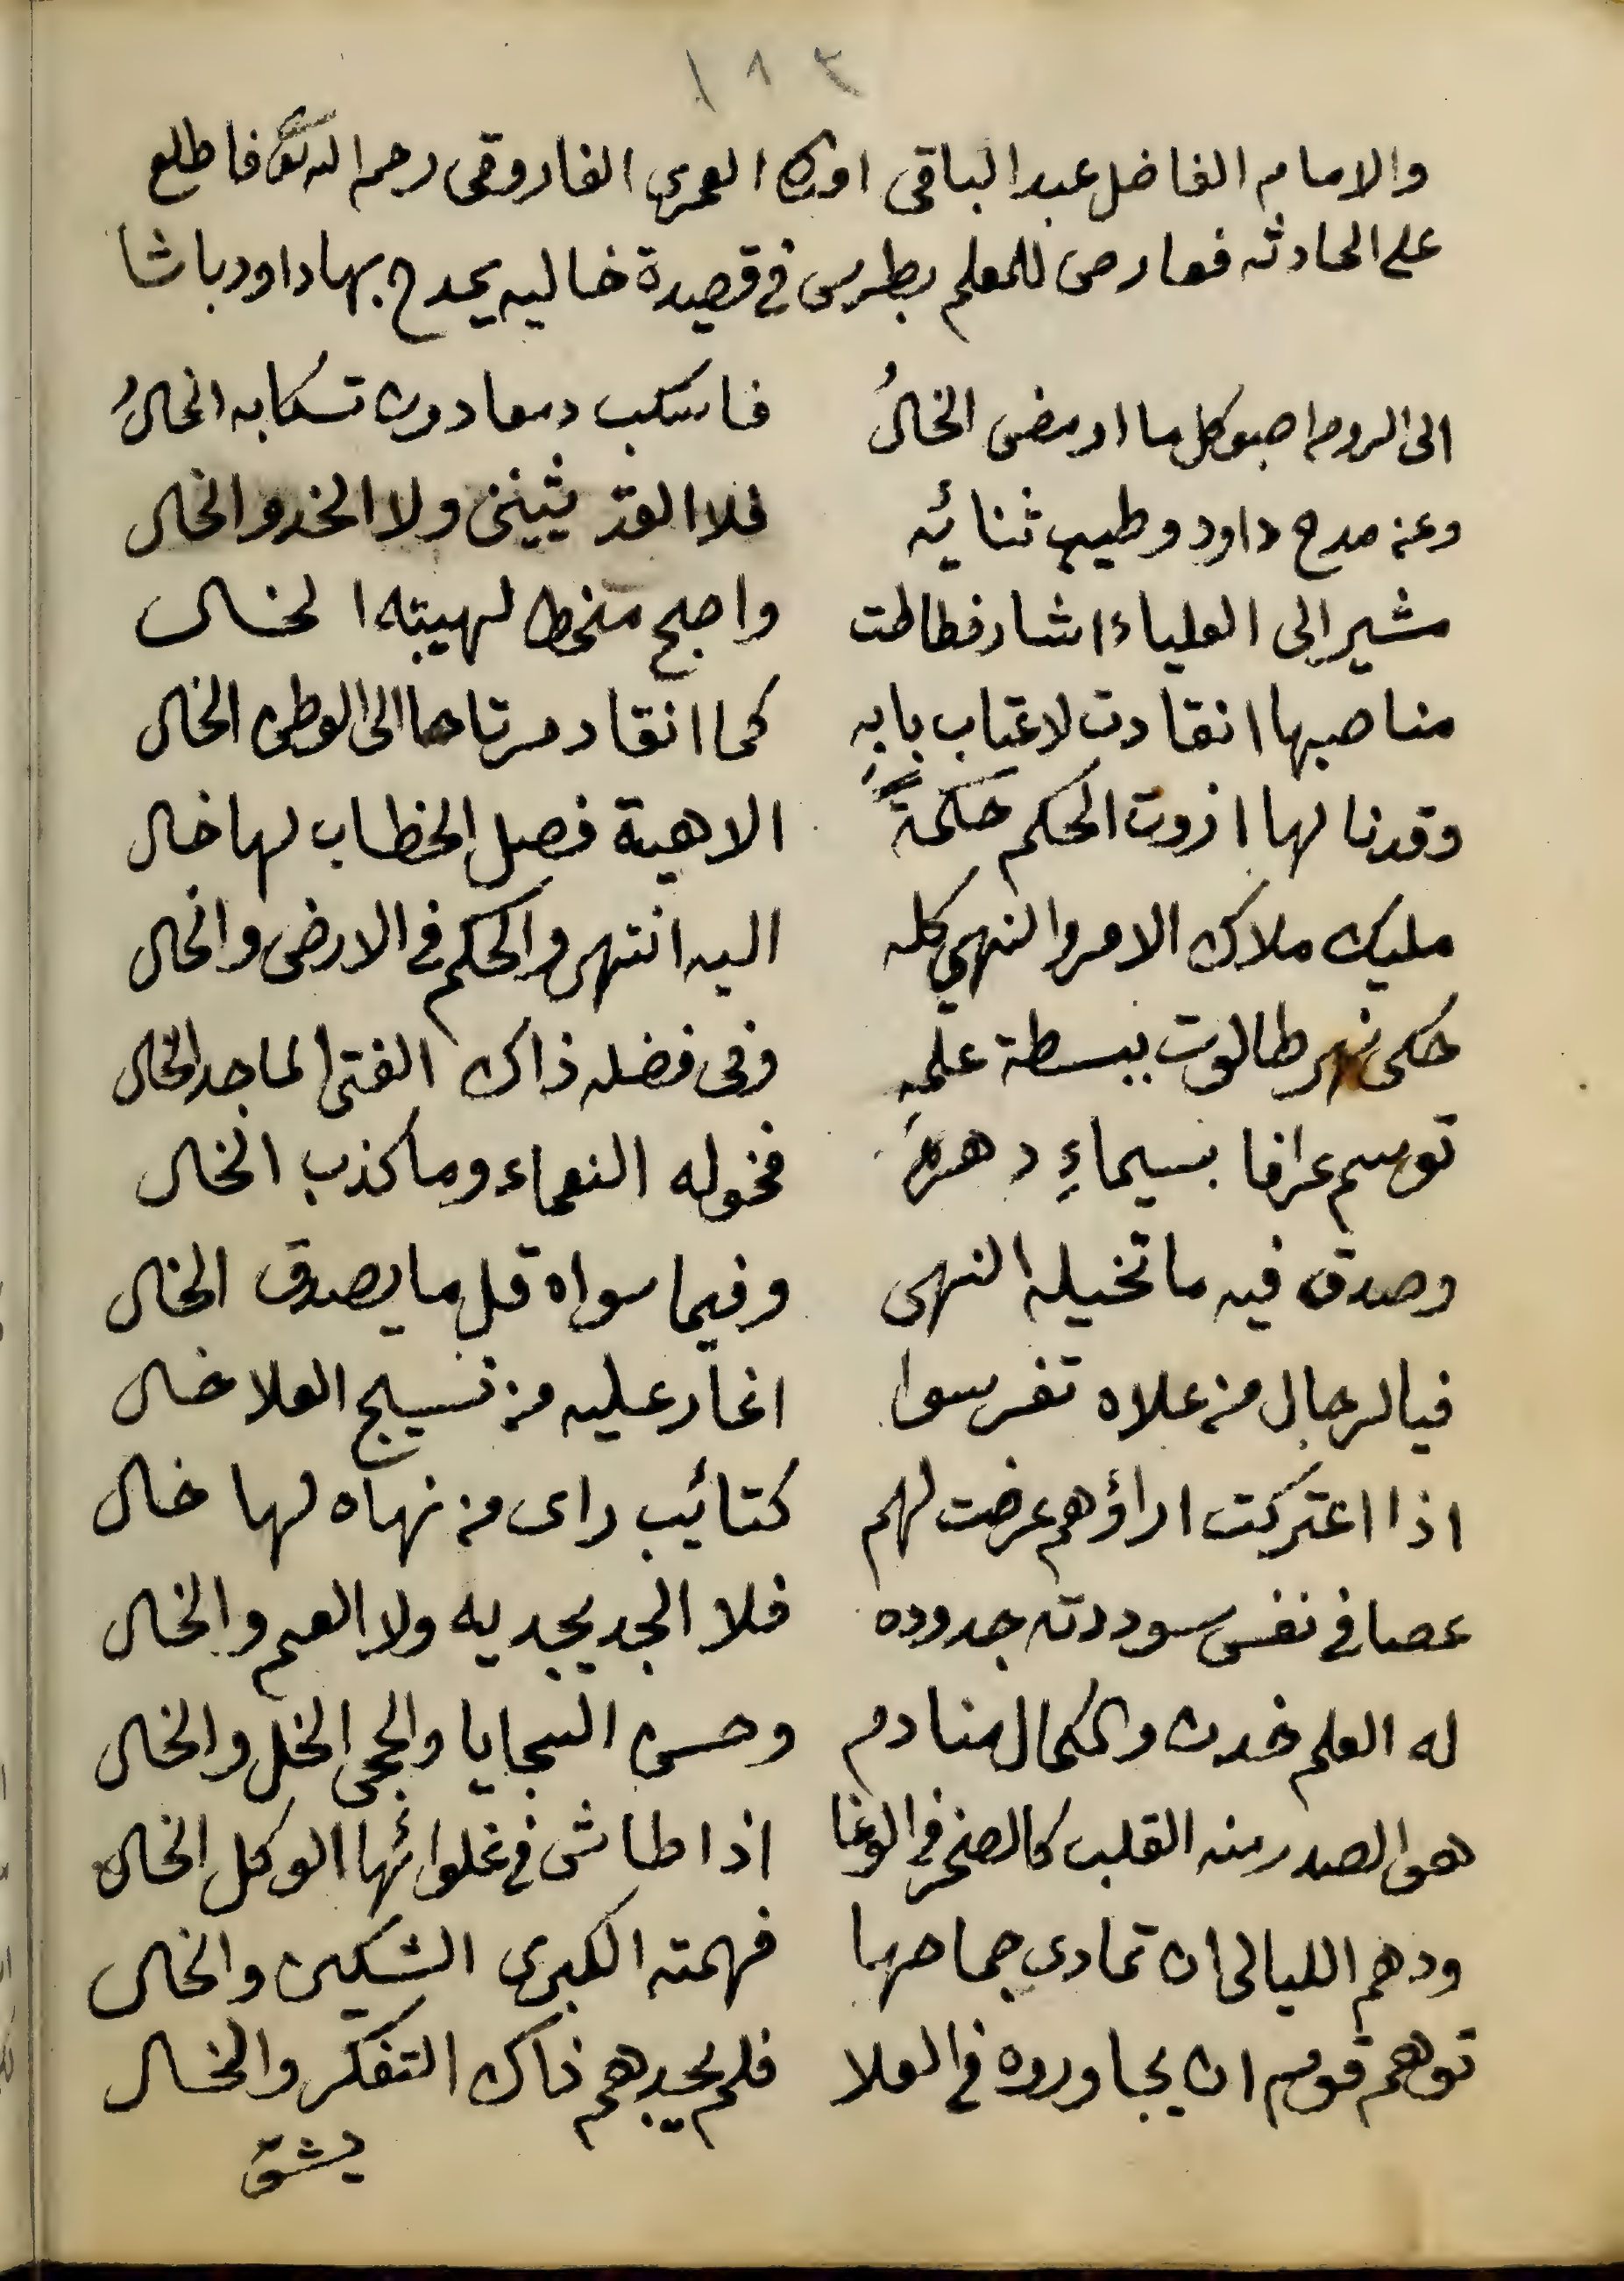 ١٨٢
والامام الفاضل عبد الباقي العمري الفاروقي رحمه الله تعالى فاطلع
على الحادثه فعارض للمعلم بطرس في قصيدة خاليه يمدح بها داود باشا
الى الروم اصبو كل ما اومض الخالُ فاسكب دمعا دون تسكابه الخالُ
وعن مدح داود وطيب ثنائه فلا القدّ يثينى ولا الخد والخال
مشير الى العلياء اشار فطاطت واصبح منحط لهيبته الخال
مناصبها انقادت لاعتاب بابهِ كما انقاد مرتاحا الى الوطن الخال
وقدنا لها اذ وت الحكم حكمةً الاهية فصل الخطاب لها خال
مليك ملاك الامر والنهي كله اليه انتهى والحكم في الارض والخال
حكى نهر طالوت ببسطة علمه وفى فضله ذاك الفتى الماجد الخال
توسم عرافا بسيماءِ دهرهِ فخوله النعماء وما كذب الخال
وصدق فيه ما تخيله النهى وفيما سواه قل ما يصدق الخال
فيا لرجال من علاه تفرسوا اغار عليه من نسيج العلا خال
اذا اعتركت اراؤهم عرضت لهم كتائب راى من نهاه لها خال
عصا في نفس سوددته جدوده فلا الجد يجديه ولا العم والخال
له العلم خدن والكمال منادم وحسن السجايا والحجى الخل والخال
هو الصدر منه القلب كالصخر في الوغا اذا طاش في غلوائها الوكل الخال
ودهم الليالى ان تمادى جماحها فهمته الكبرى الشكين والخال
توهم قوم ان يجاوروه في العلا فلم يجدهم ذاك التفكر والخال
يشق